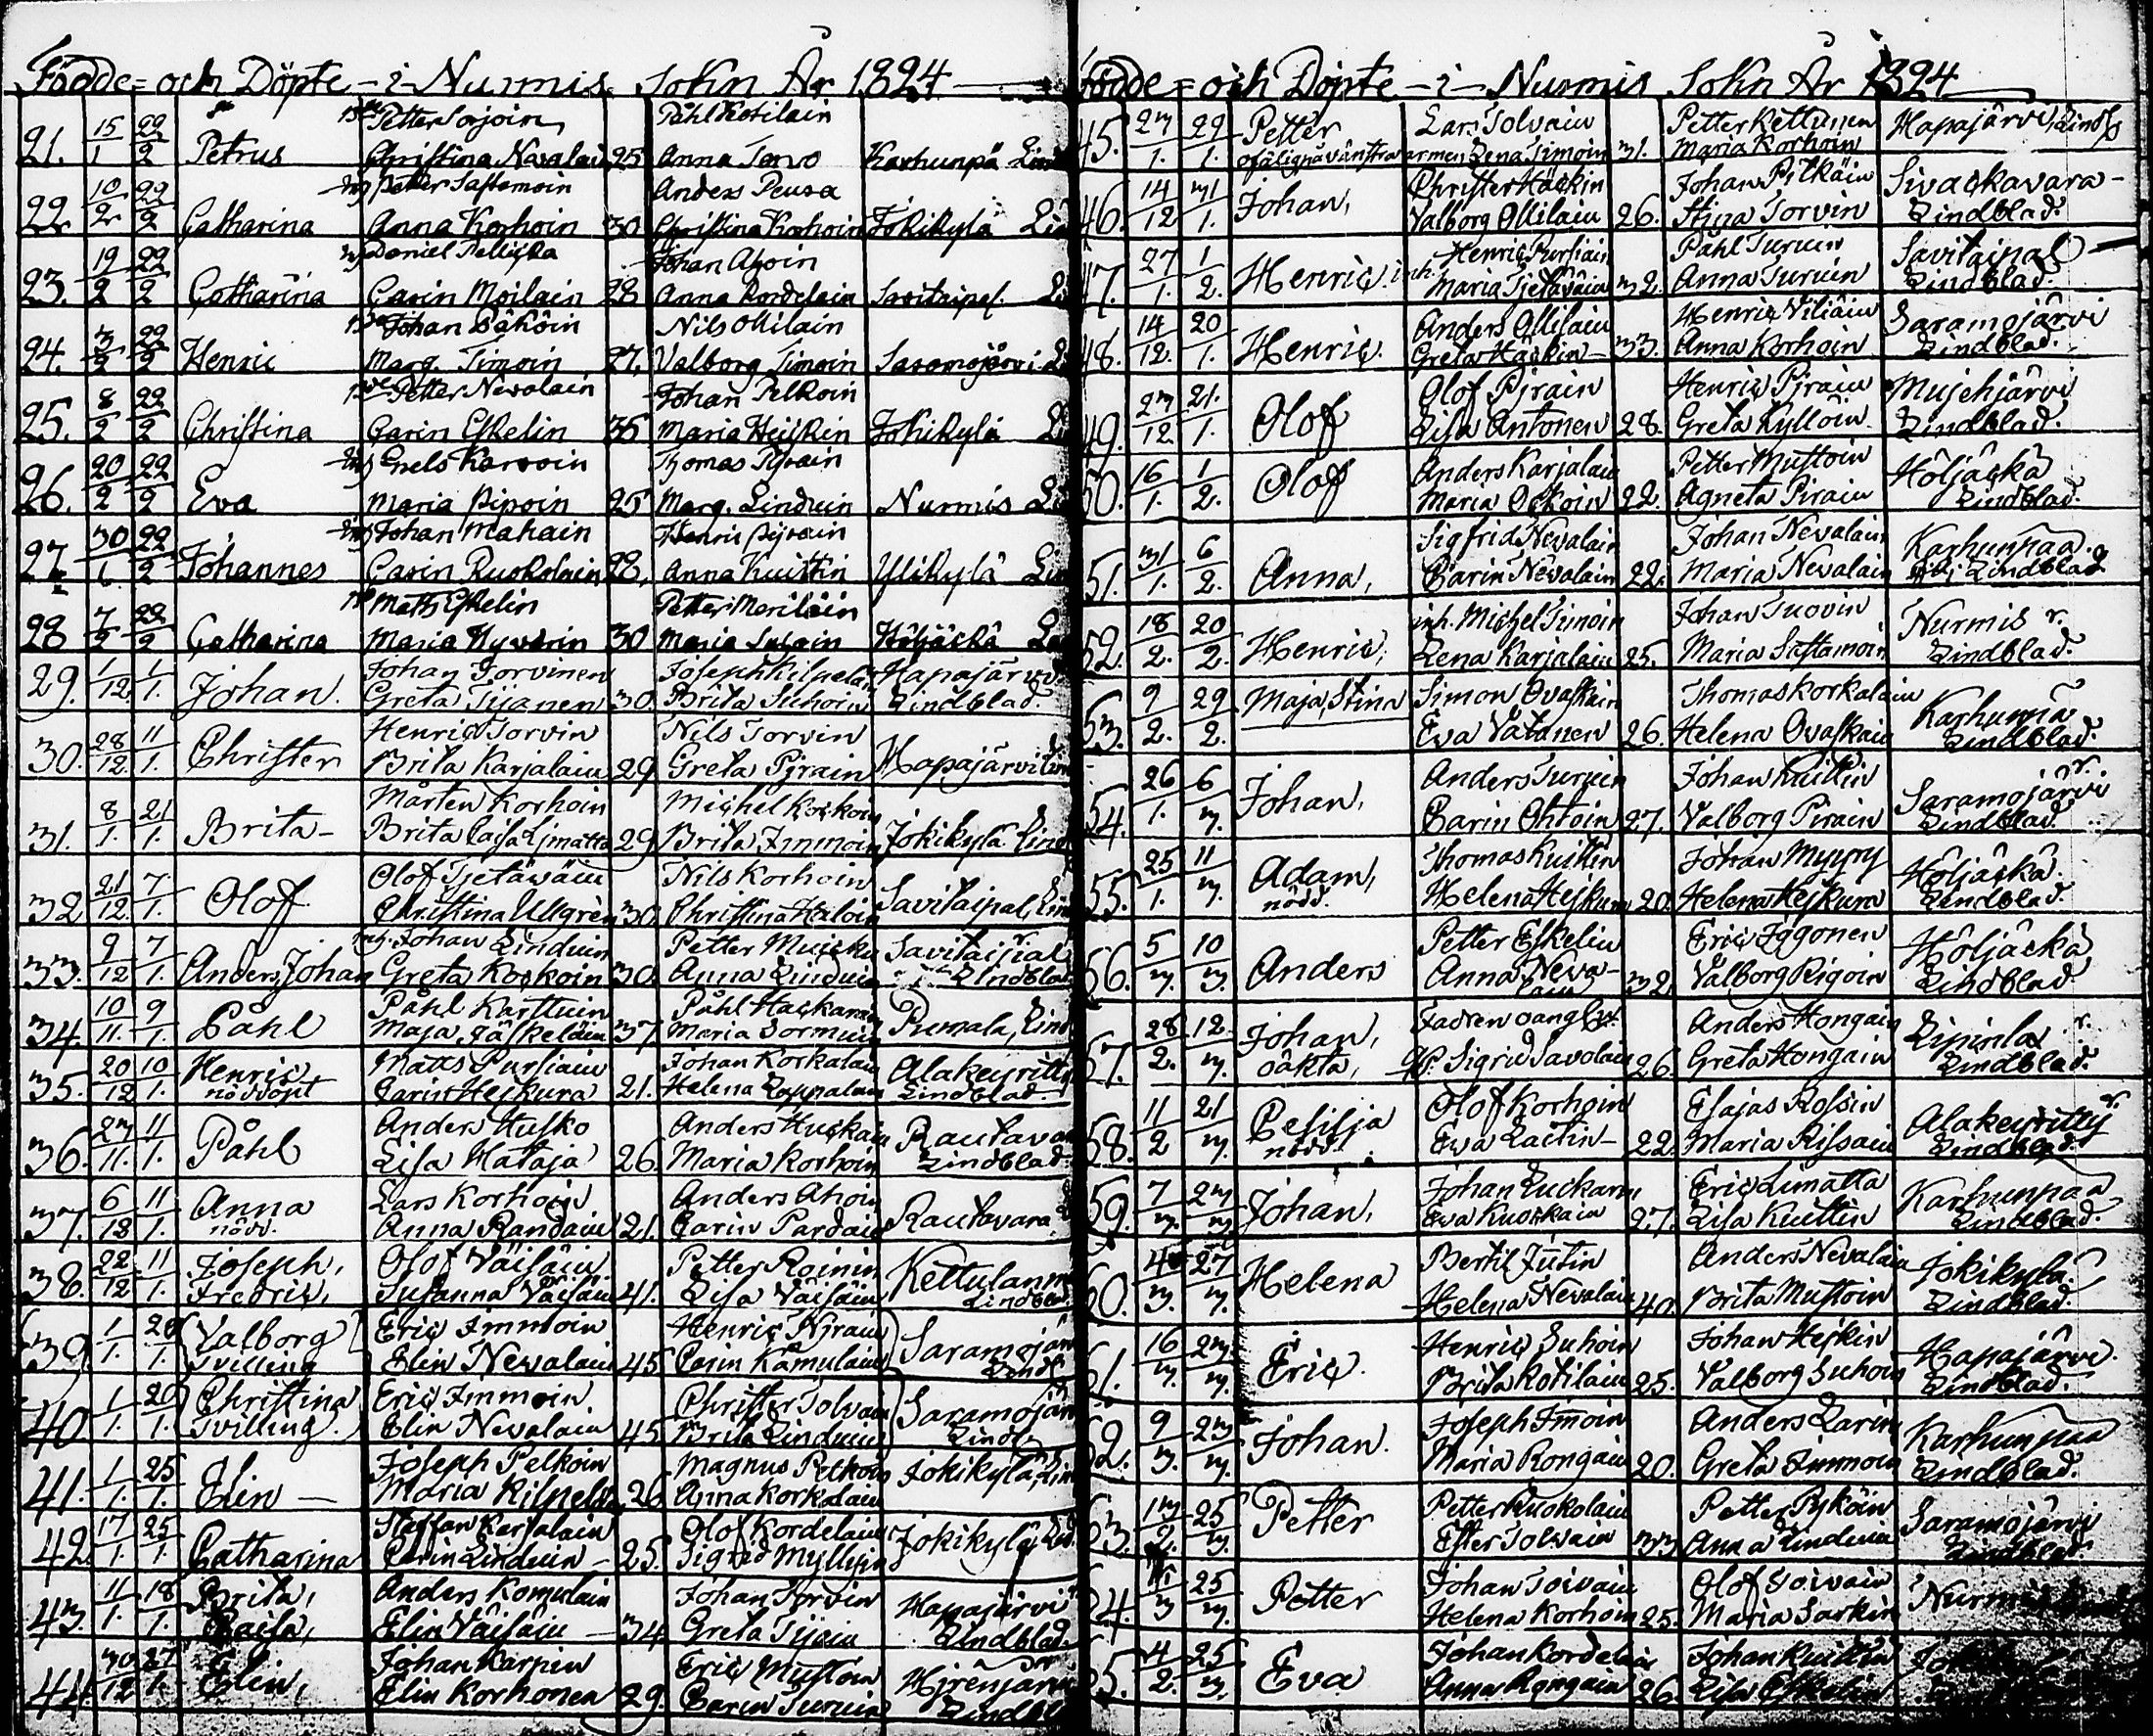 Födde= och Döpte - i - Nurmis Sokn År 1824
21. 15/1 22/2 Petrus Petter Sorjoin Påhl Kotilain
Christina Navalain 25 Anna Torvo Karhunpä
22. 10/2 22/2 Catharina Petter Sastamoin Anders Peusa
Anna Korhoin 30 Christina Korhoin Jokikylä
23. 19/2 22/2 Catharina Daniel Pellicka Johan Ahoin
Carin Moilain 28 Anna Kordelain Savitaipal.
24. 3/2 22/2 Henric Johan Päköin Nils Ollilain
Marg. Timoin 27. Valborg Timoin Saramojärvi
25. 8/2 22/2 Christina Petter Nevalain Johan Pelkoin
Carin Eskelin 35 Maria Heiskin Jokikylä
26. 20/2 22/2 Eva Grels Karvoin Thomas Pyrain
Maria Piipoin 25 Marg. Linduin Nurmis
27. 30/1 22/2 Johannes Johan Mahain Henric Pyrain
Carin Ruokolain 28. Anna Kuittin Ylikylä
28 7/2 22/2 Catharina Matts Eskelin Petter Meriläin
Maria Hyvärin 30 Maria Susain Höljäckä
29. 1/12. 1/1. Johan. Johan Torvinen Joseph Kilpeläin Hapajärvi
Greta Tijanen 30. Brita Suhoin Lindblad.
30. 28/12. 11/1. Christer Henric Torvin Nils Torvin
Brita Karjalain 29 Greta Pjrain Hapajärvi
31. 8/1. 21/1. Brita - Mårten Korhoin Michel Kockoin
Brita Caisa Limatta 29 Brita Immoin Jokikylä
32 21/12. 7/1. Olof Olof Tjetäwäin Nils Korhoin
Christina Ullgrèn 30. Christina Haloin Savitaipal
33. 9/12 7/1. Anders Johan Johan Linduin Petter Muicku Savitaipal
Greta Kockoin 30. Anna Linduin Lindblad
34. 10/11. 9/1. Påhl Påhl Karttuin Påhl Hackarain
Maja Jäskeläin 37 Maria Sormuin Pumala,
35. 20/12 10/1. Henric Matts Pursiain Johan Korkalain Alakeyritty
nöddöpt Carin Heskura 21. Helena Lappalain Lindblad.
36. 23/11. 11/1. Påhl Anders Husko Anders Huckain Rautavara
Lisa Hataja 26. Maria Korhoin Lindblad.
37. 6/12 11/1. Anna Lars Korhoin Anders Ahoin
nödd. Anna Randain 21. Carin Pardain Rautavara
38. 22/12 11/1. Joseph, Olof Väisäin Petter Roinin
Fredric, Susanna Väisäin 41. Lisa Väisäin Lindblad
39. 1/1. 20/1. Valborg Eric Immoin Henric Pjrain
Tvilling Elin Nevalain 45 Carin Kämäläin Saramojär
40 1/1. 20/1. Christina Eric Immoin Christer Tolvain
Tvilling. Elin Nevalain 45 Brita Linduin Saramojär
41. 1/1. 25/1. Elin - Joseph Pelkoin Magnus Pelkoin Jokikylä
Maria Kilpeläin 26 Anna Korkalain
42. 17/1. 25/1. Catharina Staffan Karjalain Olof Kordelain
Carin Linduin - 25. Sigrid Myllyin Jokikylä
43. 11/1. 18/1. Brita, Anders Komulain Johan Torvin Hapajärvi
Caisa, Elin Väisäin - 34 Greta Tijain Lindblad.
44. 30/12 27/1. Elin, Johan Karpin Eric Mustoin
Elin Korhonen 29. Carin Turuin
Födde = och Döpte - i - Nurmis Sokn År 1824
45. 23/1. 29/1. Petter Lars Tolvain Petter Kettunen Hapajärvi,
ofälig på vänstra armen Lena Timoin 31. Maria Korhoin
46. 14/12 31/1. Johan, Christer Häckin Johan Pitkäin Sivackavara -
Valborg Ollilain 26. Stina Torvin Lindblad.
47. 27/1. 1/2. Henric. inh. Henric Pursiain Påhl Turuin Savitaipal
Maria Tjetäväin 32. Anna Turuin Lindblad.
48. 14/12. 20/1. Henric. Anders Ollilain Henric Viliäin Saramojärvi
Greta Häckin - 33. Anna Korhoin Lindblad.
49. 23/12. 21./1. Olof Olof Pjrain Henric Pjrain Mujehjärvi
Lisa Antonen 28. Greta Kylloin. Lindblad.
50. 16/1. 1/2. Olof Anders Karjalain Petter Mustoin Höljäckä
Maria Ockoin 22. Agneta Pirain Lindblad.
51. 31/1. 6/2. Anna, Sigfrid Nevalain Johan Nevalain Karhunpaa.
Carin Nevalain 22. Maria Nevalain Lindblad
52. 18/2. 20/2. Henric, inh. Michel Timoin Johan Tuovin Nurmis
Lena Karjalain 25. Maria Sastamoin Lindblad.
53. 9/2. 29/2. Maja Stina Simon Ovaskain Thomas Korkalain Karhunpä
Eva Vatanen 26. Helena Ovaskain Lindblad.
54. 26/1. 6/3. Johan, Anders Turuin Johan Kuittin Saramojärvi
Carin Ohtoin 27. Valborg Pirain Lindblad.
55. 25/1. 11/3. Adam, Thomas Kuittin Johan Myyry Höljäckä.
nödd. Helena Heskura 20. Helena Heskura Lindblad.
56. 5/3. 10/3. Anders Petter Eskelin Eric Jggonen Höljäckä
Anna Neva-
lain 32. Valborg Rigoin Lindblad
57. 28/2. 12./3. Johan, Fadren oangifv. Anders Hongain Lipinla
oäkta, Sigrid Savolain 26. Greta Hongain Lindblad.
58. 11/2 21/3. Cesilja Olof Korhoin Esajas Rossin Alakeyritty
nödd. Eva Laitin - 22. Maria Rissain Lindblad.
59. 7/3. 23/3. Johan, Johan Luckarin Eric Limatta Karhunpaa
Eva Kuockain 27. Lisa Kuittin Lindblad.
60. 4/3. 27/3. Helena Bertil Justin Anders Nevalain Jokikylä.
Helena Nevalain 40. Brita Mustoin Lindblad.
61. 16/3. 23./3. Eric. Henric Suhoin Johan Heskin Hapajärvi.
Brita Kotilain 25. Valborg Suhoin Lindblad.
62. 9/3. 23/3. Johan. Joseph Immoin Anders Larin Karhunpaa
Maria Rongain 20. Greta Immoin Lindblad.
63. 13/2. 25/3. Petter Petter Ruokolain Petter Pyköin Saramojärvi
Ester Tolvain 33 Anna Linduin Lindblad.
64. 25/3. Petter Johan Toivain Olof Toivain Nurmis
Helena Korhoin 25. Maria Sarkin
65. 4/2. 25/3. Eva Johan Kordelain Johan Kuittin
Anna Rongain 26. Lisa Eskelin